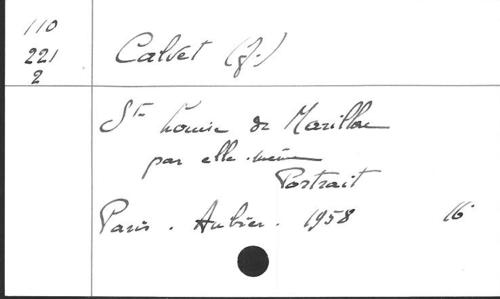 110
221
2
Calvet (J.)
Ste Louise de Marillac
par elle-même
Portrait
Paris. Aubier. 1958 16°